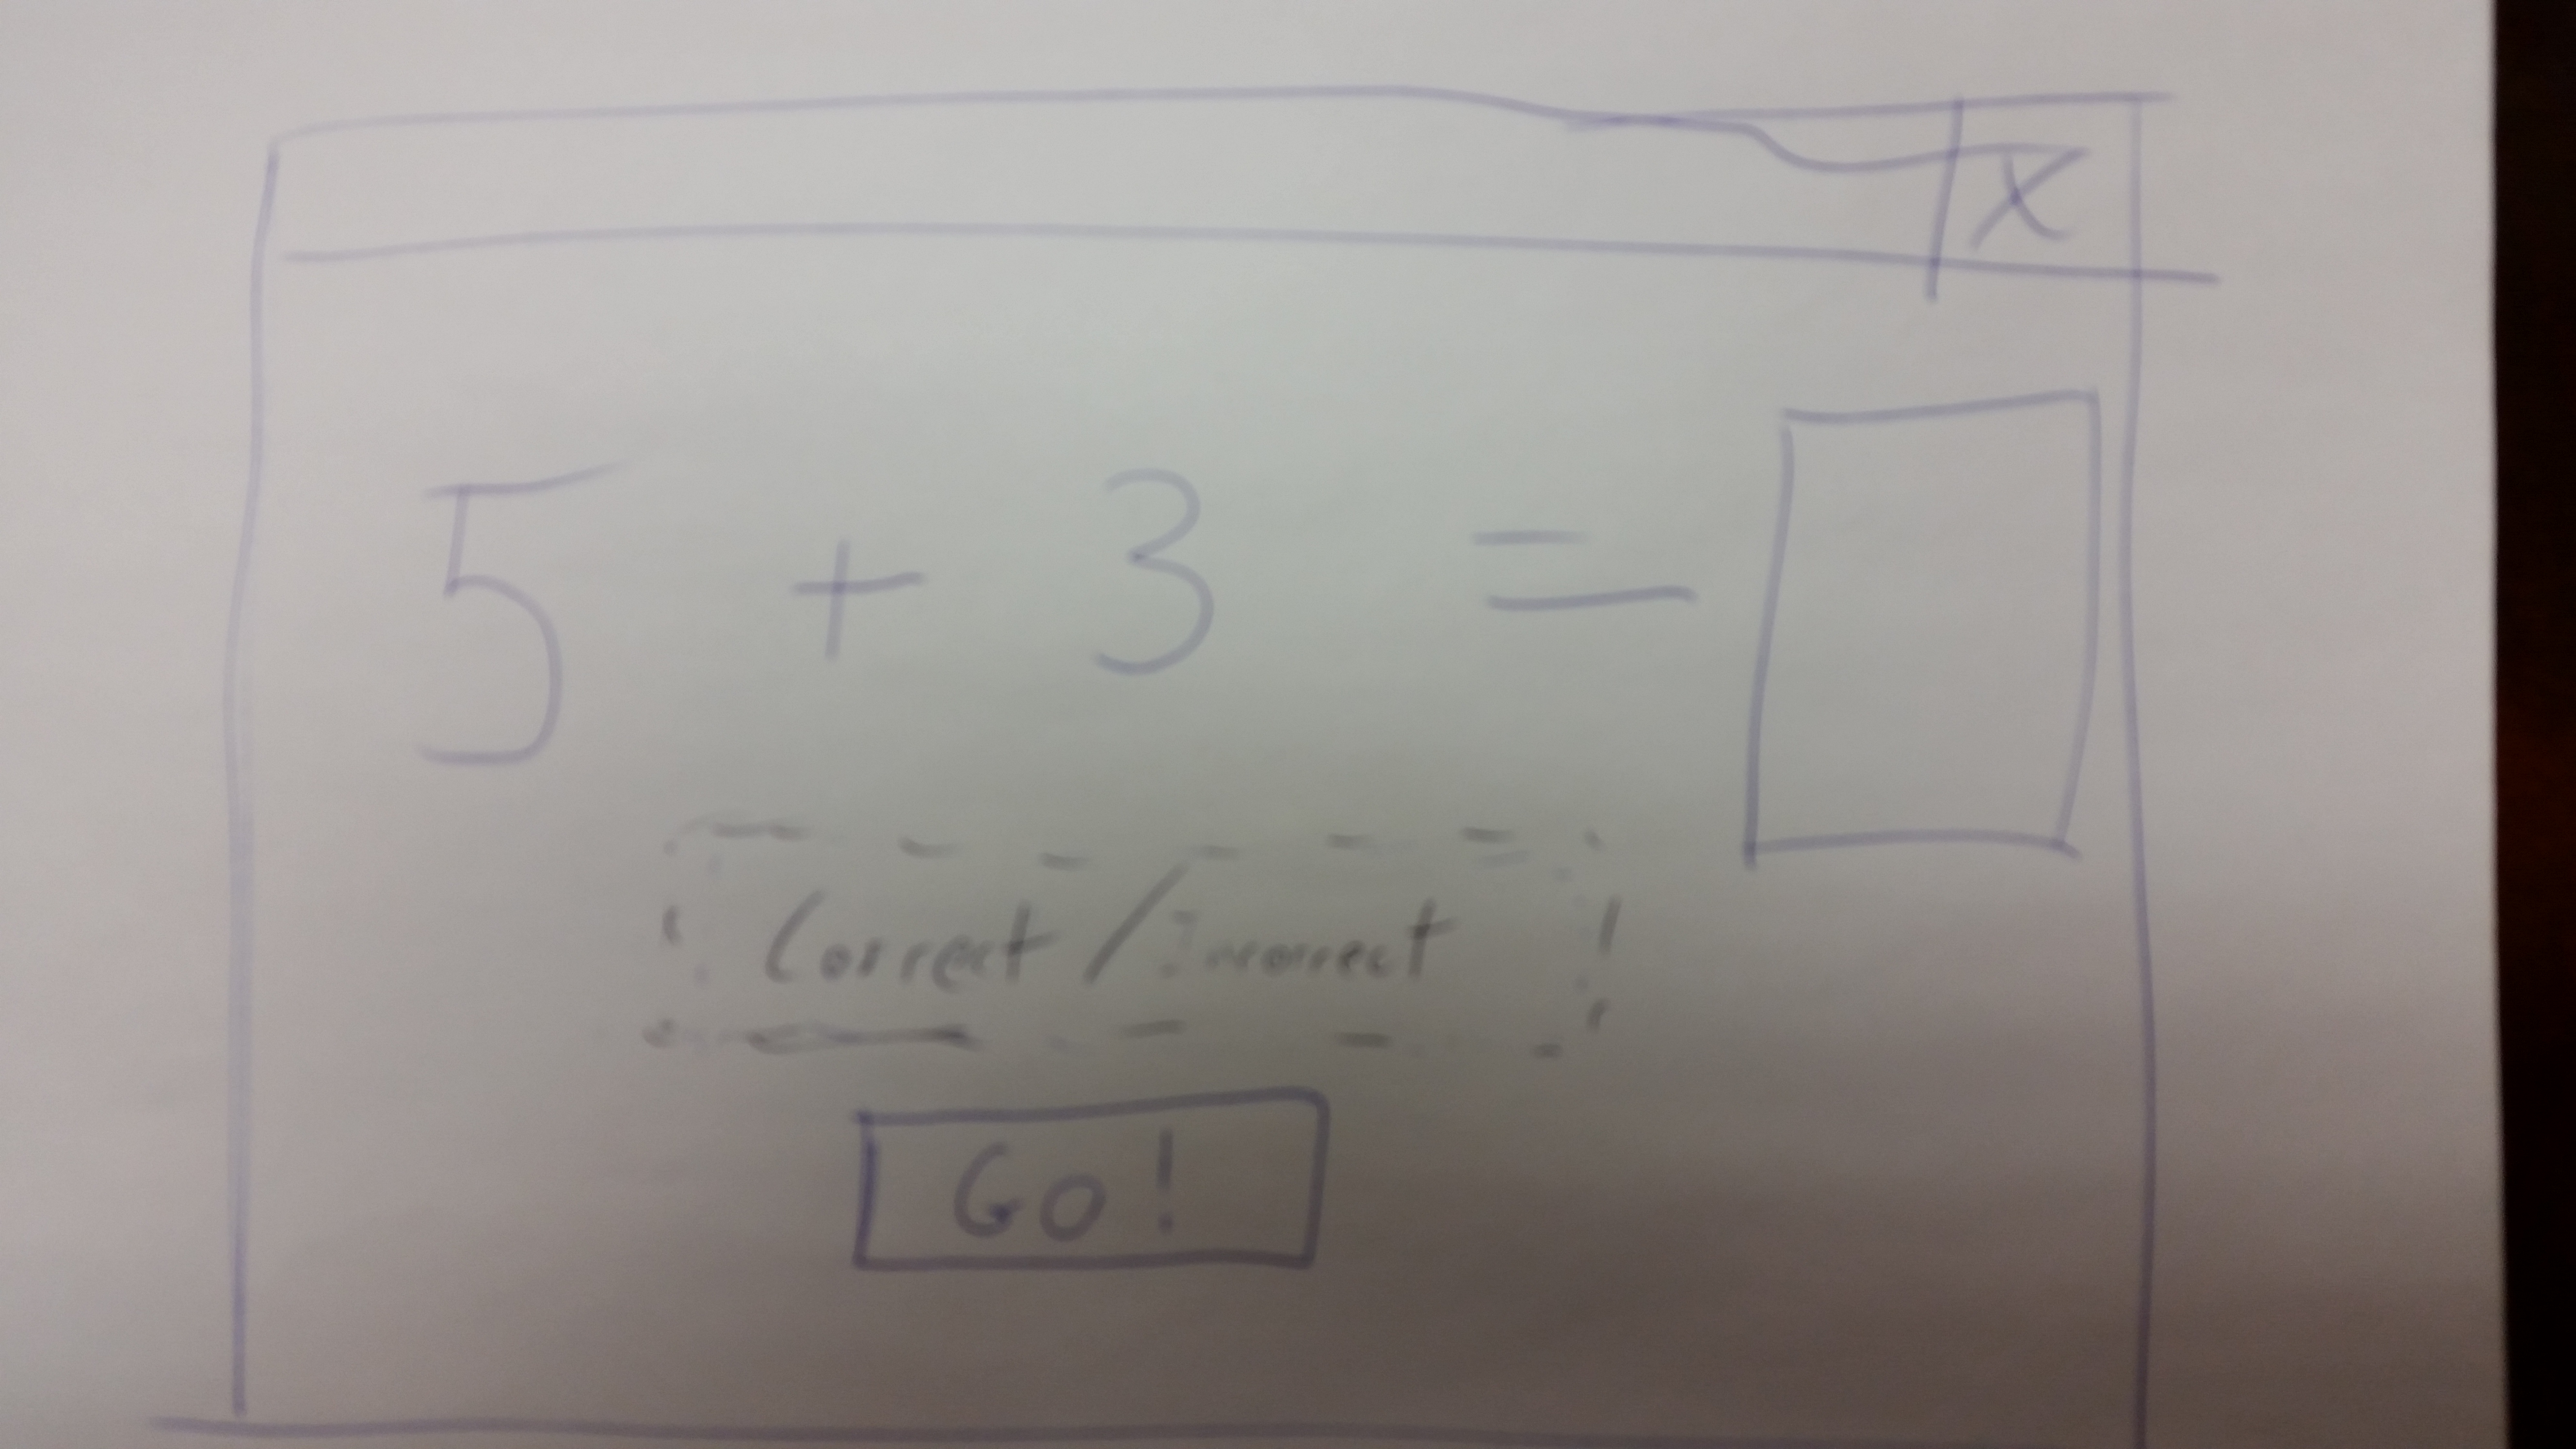 X
5 + 3 =
Correct / Incorrect
GO!